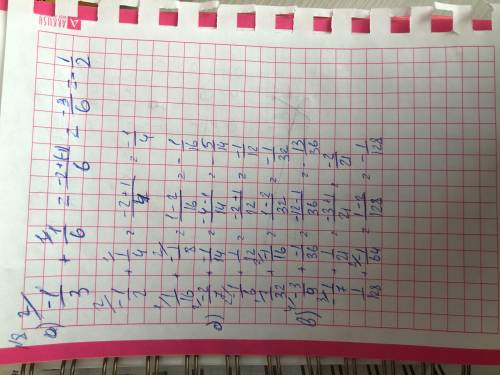 ARKUSH
18
а) -1/3 + -1/6 = -2+(-1)/6 = -3/6 = -1/2
-1/2 + 1/4 = -2+1/4 = -1/4
1/16 + -1/8 = 1-2/16 = -1/16
б) -2/7 + -1/14 = -4-1/14 = -5/14
-1/6 + 1/12 = -2+1/12 = -1/12
1/32 + -1/16 = 1-2/32 = -1/32
в) -3/9 + -1/36 = -12-1/36 = -13/36
-1/7 + 1/21 = -3+1/21 = -2/21
1/128 + -1/64 = 1-2/128 = -1/128